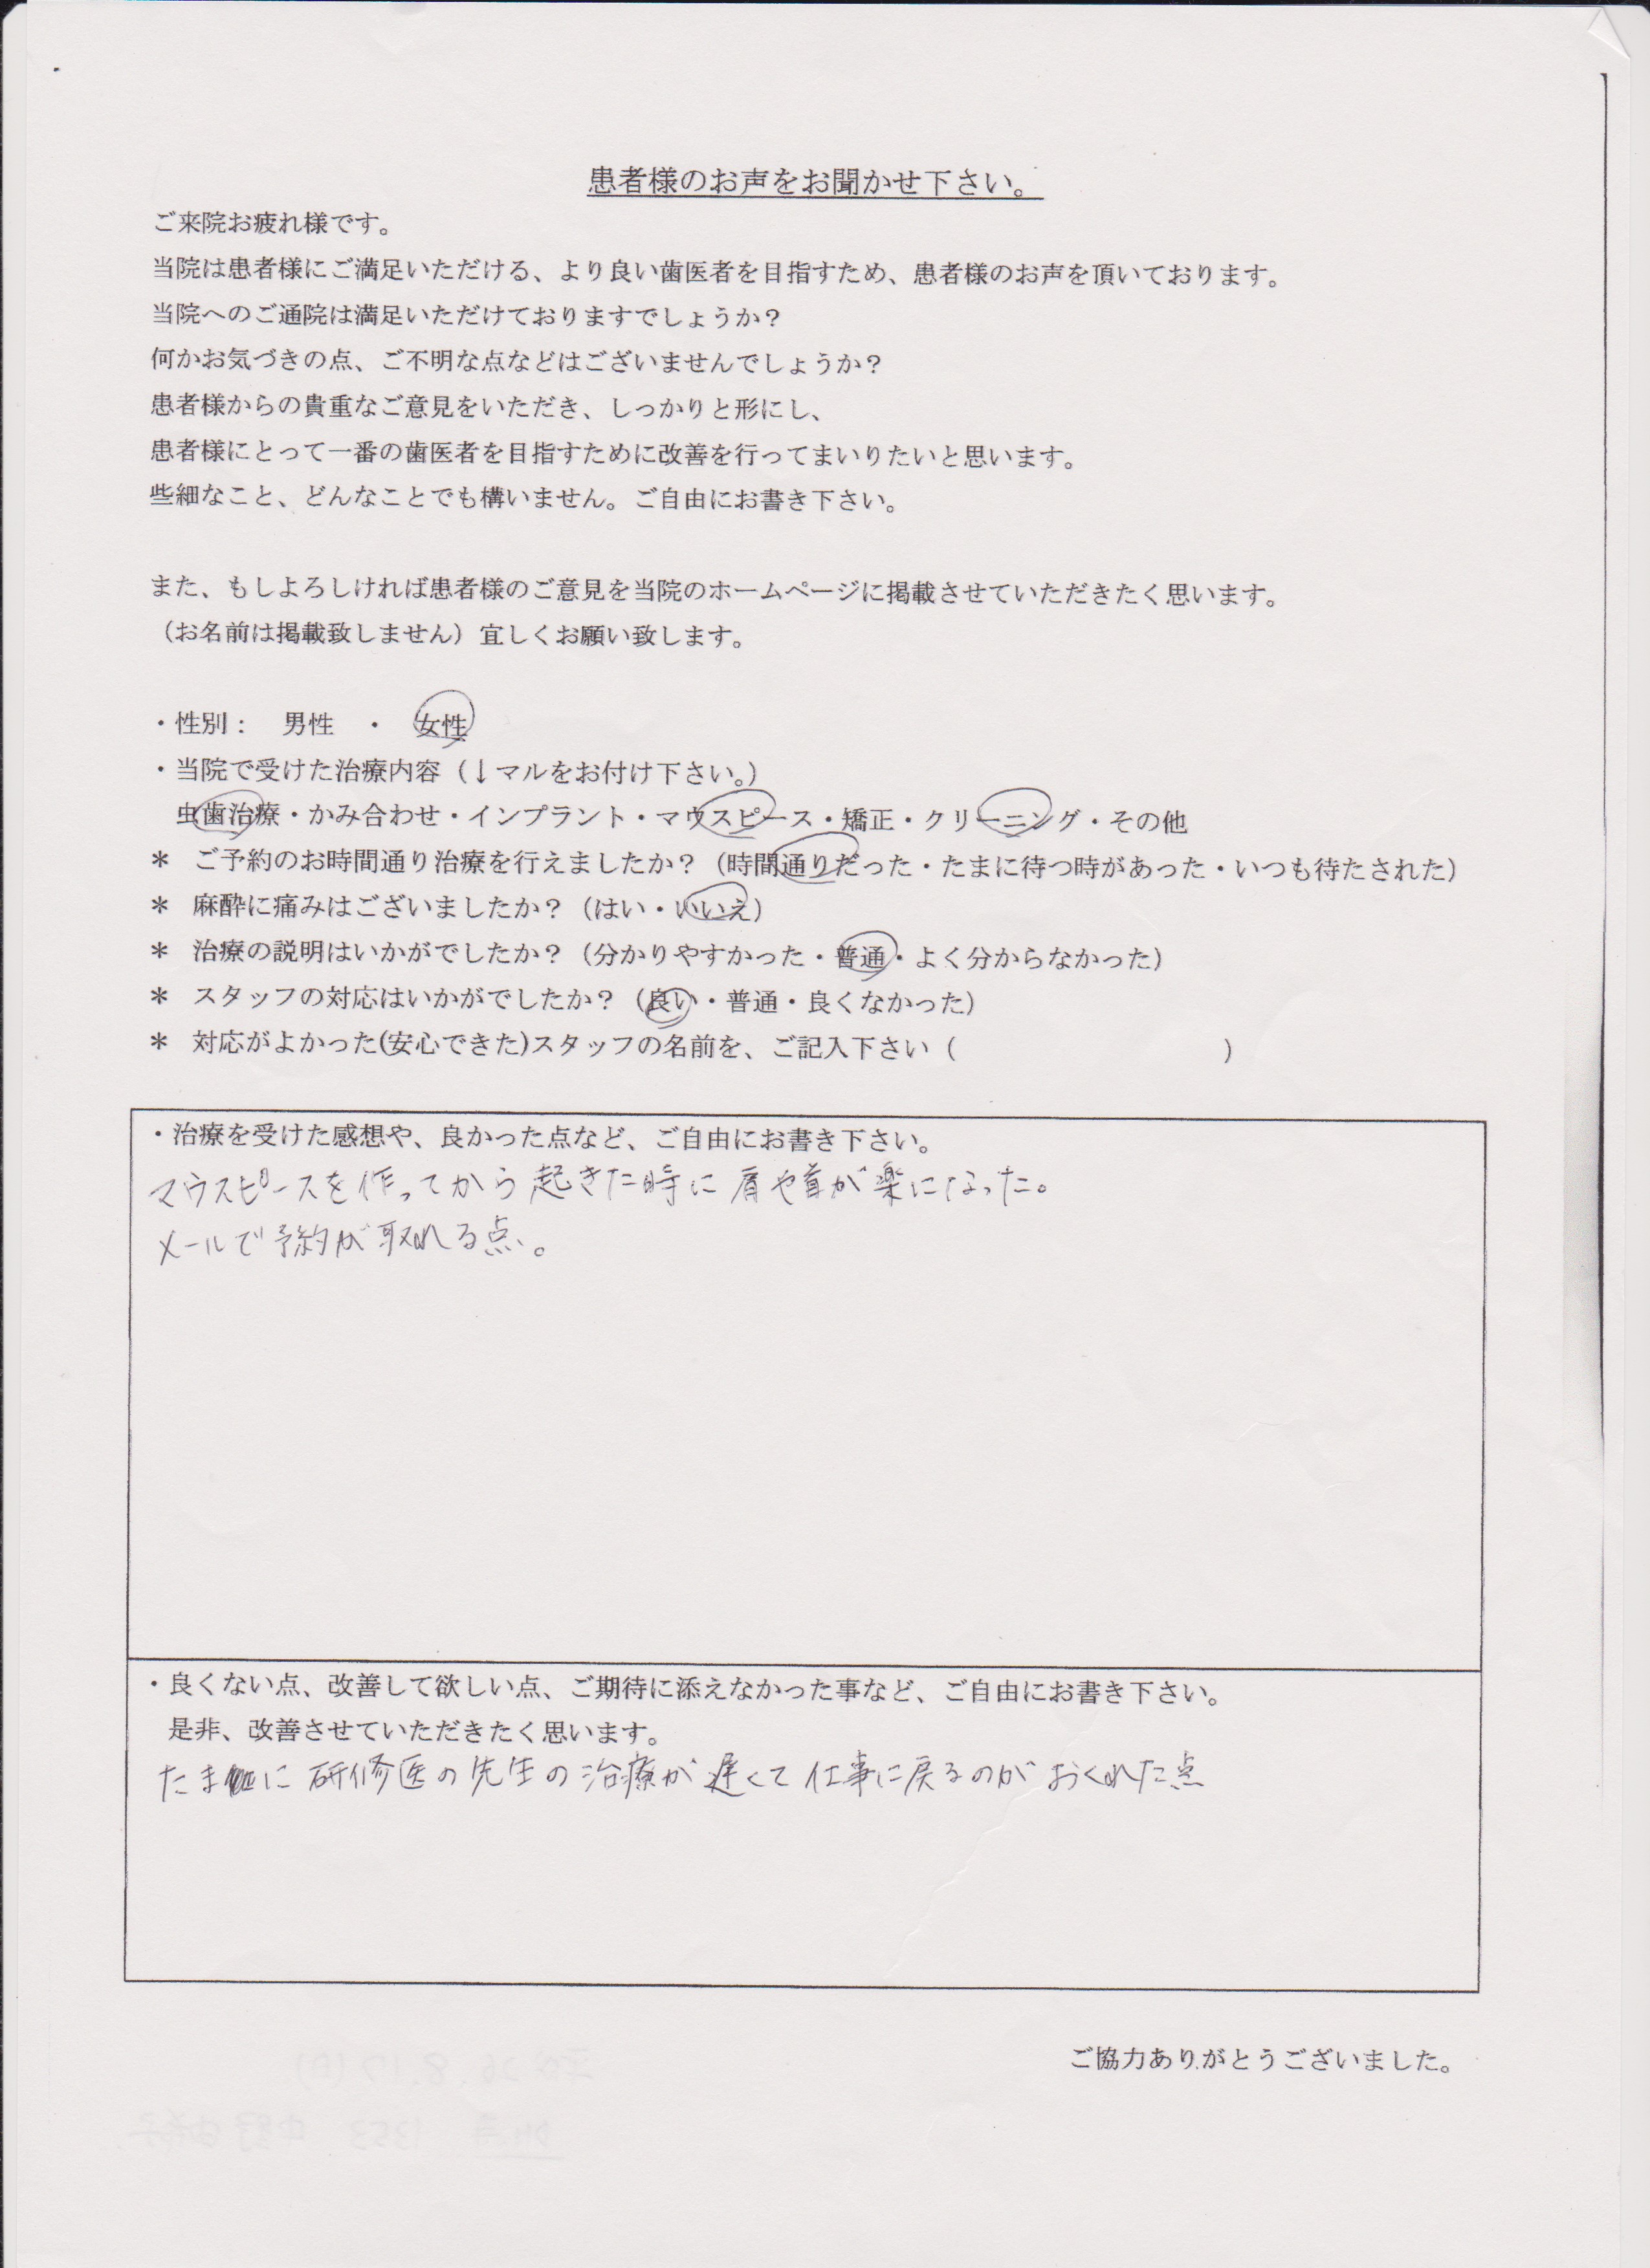 患者様のお声をお聞かせ下さい。
ご来院お疲れ様です。
当院は患者様にご満足いただける、より良い歯医者を目指すため、患者様のお声を頂いております。
当院へのご通院は満足いただけておりますでしょうか？
何かお気づきの点、ご不明な点などはございませんでしょうか？
患者様からの貴重なご意見をいただき、しっかりと形にし、
患者様にとって一番の歯医者を目指すために改善を行ってまいりたいと思います。
些細なこと、どんなことでも構いません。ご自由にお書き下さい。
また、もしよろしければ患者様のご意見を当院のホームページに掲載させていただきたく思います。
（お名前は掲載致しません）宜しくお願い致します。
・性別：　男性　・　女性
・当院で受けた治療内容（↓マルをお付け下さい。）
虫歯治療・かみ合わせ・インプラント・マウスピース・矯正・クリーニング・その他
＊　ご予約のお時間通り治療を行えましたか？（時間通りだった・たまに待つ時があった・いつも待たされた）
＊　麻酔に痛みはございましたか？（はい・いいえ）
＊　治療の説明はいかがでしたか？（分かりやすかった・普通・よく分からなかった）
＊　スタッフの対応はいかがでしたか？（良い・普通・良くなかった）
＊　対応がよかった(安心できた)スタッフの名前を、ご記入下さい（　　　　　　　　　　）
・治療を受けた感想や、良かった点など、ご自由にお書き下さい。
マウスピースを作ってから起きた時に肩や首が楽になった。
メールで予約が取れる点。
・良くない点、改善して欲しい点、ご期待に添えなかった事など、ご自由にお書き下さい。
是非、改善させていただきたく思います。
たまに研修医の先生の治療が遅くて仕事に戻るのがおくれた点
ご協力ありがとうございました。